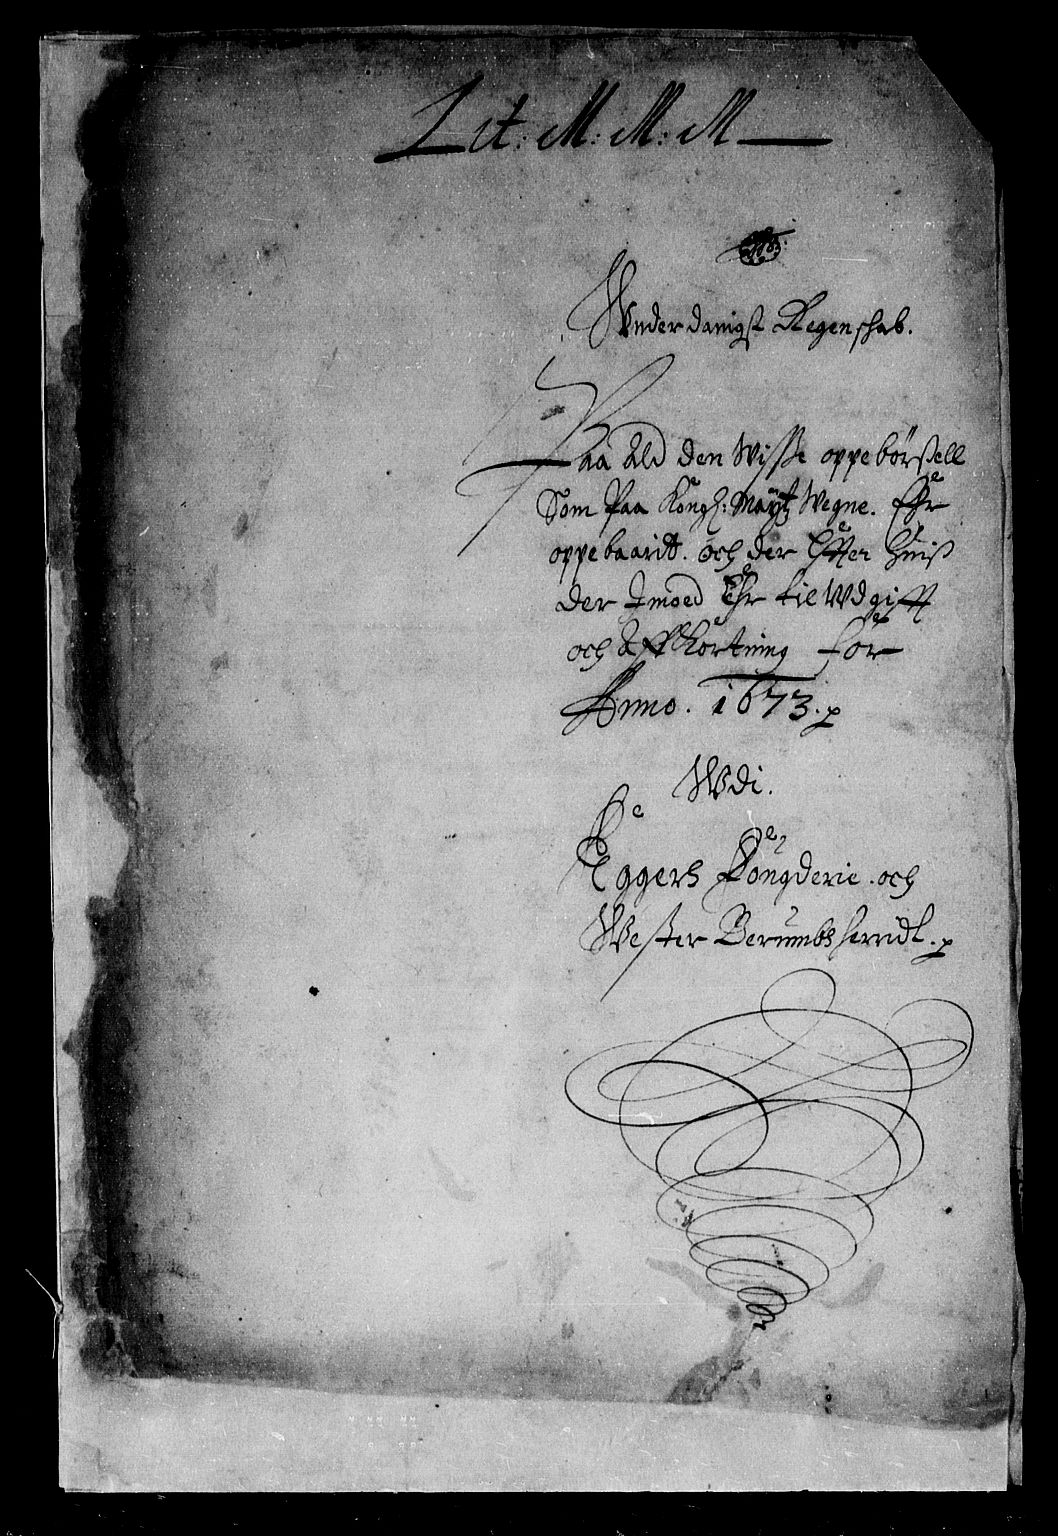 Lit: M: M: M
Vnderdanigst Regenschab.
Paa Ald den Wisse oppebörßell
Som Paa Kongl: Maytz Wegne. Ehr
oppebaaridt. och der Effter huiß
der Imoed Ehr til Wdgifft
och Affkortning for
Anno. 1673.
Wdi.
Eggers Fougderie och
Wester Berumbs herridt.